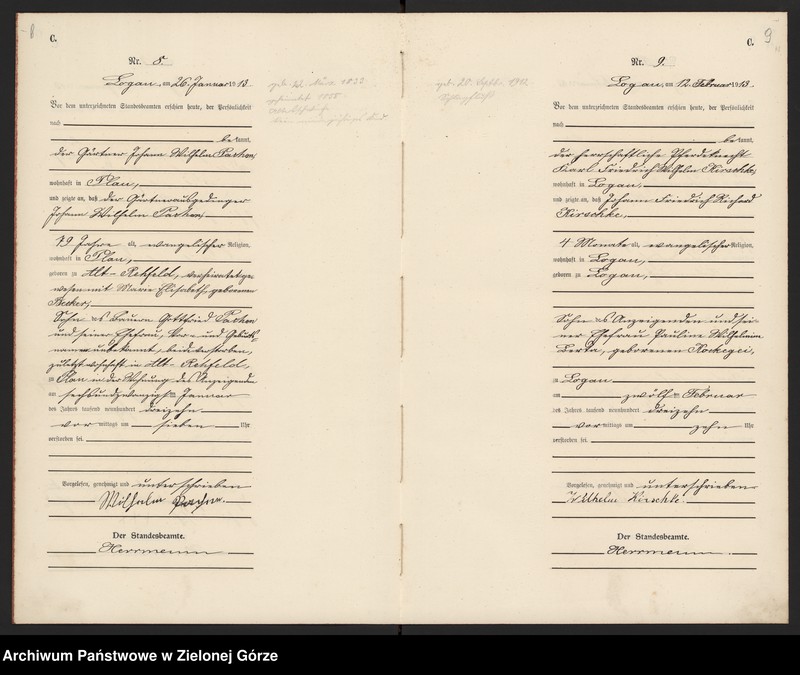 8
C.
Nr. 8.
Logau, am 26. Januar 1913
Vor dem unterzeichneten Standesbeamten erschien heute, der Persönlichkeit
nach
be kannt,
der Gärtner Johann Wilhelm
wohnhaft in Plau,
und zeigte an, daß der Gärtnerausgedinger
Johann Wilhelm
79 Jahre alt, evangelischer Religion,
wohnhaft in Plau,
geboren zu Alt-Rehfeld, verheiratet ge-
wesen mit Marie Elisabeth, geborenen
Becker,
Sohn des Bauern Gottfried
und seiner Ehefrau, Vor- und Geburts-
namen unbekannt, beide verstorben,
zuletzt wohnhaft in Alt-Rehfeld,
zu Plau in der Wohnung des Anzeigenden
am sechsundzwanzigsten Januar
des Jahres tausend neunhundert dreizehn
vor mittags um sieben Uhr
verstorben sei.
Vorgelesen, genehmigt und unterschrieben
Wilhelm
Der Standesbeamte.
Herrmann
9
C.
Nr. 9.
Logau, am 12. Februar 1913
Vor dem unterzeichneten Standesbeamten erschien heute, der Persönlichkeit
nach
be kannt,
der herrschaftliche Pferdeknecht
Karl Friedrich Wilhelm Kirschke,
wohnhaft in Logau,
und zeigte an, daß Johann Friedrich Richard
Kirschke,
4 Monate alt, evangelischer Religion,
wohnhaft in Logau,
geboren zu Logau,
Sohn des Anzeigenden und sei-
ner Ehefrau Pauline Wilhelmine
Berta, geborenen
zu Logau
am zwölften Februar
des Jahres tausend neunhundert dreizehn
vor mittags um zehn Uhr
verstorben sei.
Vorgelesen, genehmigt und unterschrieben
Wilhelm Kirschke.
Der Standesbeamte.
Herrmann.
Archiwum Państwowe w Zielonej Górze